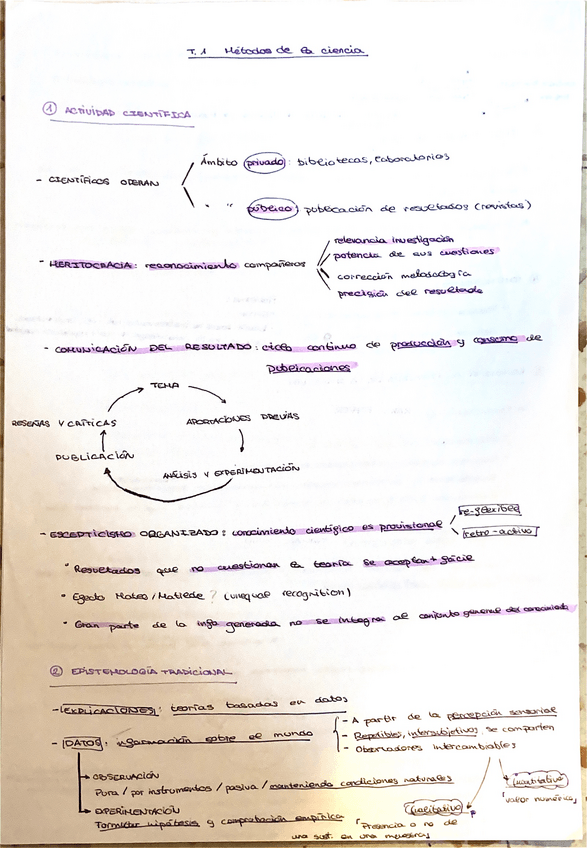 T.1 Métodos de la ciencia
① ACTIVIDAD CIENTÍFICA
- CIENTÍFICOS OPERAN
Ámbito privado: bibliotecas, laboratorios
" " público: publicación de resultados (revistas)
- MERITOCRACIA: reconocimiento compañeros
relevancia investigación
potencia de sus cuestiones
corrección metodología
precisión del resultado
- COMUNICACIÓN DEL RESULTADO: ciclo continuo de producción y consumo de
publicaciones
TEMA
RESEÑAS Y CRÍTICAS
APORTACIONES PREVIAS
PUBLICACIÓN
ANÁLISIS Y EXPERIMENTACIÓN
- ESCEPTICISMO ORGANIZADO: conocimiento científico es provisional
re-flexibel
retro-activo
• Resultados que no cuestionan la teoría se aceptan + fácil
• Efecto Mateo/Matilde? (unequal recognition)
• Gran parte de la info generada no se integra al conjunto general del conocimiento
② EPISTEMOLOGÍA TRADICIONAL
- EXPLICACIONES: teorías basadas en datos
- DATOS: información sobre el mundo
- A partir de la percepción sensorial
- Repetibles, intersubjetivos, se comparten
- Observadores intercambiables
→ OBSERVACIÓN
Pura / por instrumentos / pasiva / manteniendo condiciones naturales
→ EXPERIMENTACIÓN
Formular hipótesis y comprobación empírica
cualitativo
Presencia o no de
una sust. en una muestra
cuantitativo
valor numérico